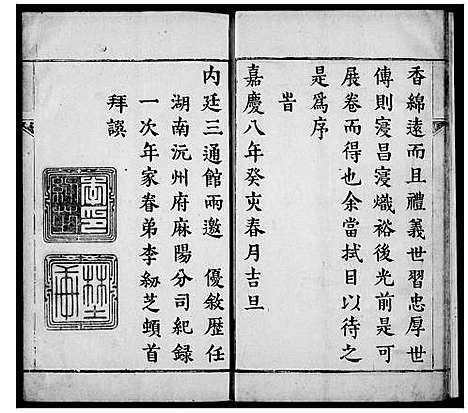 香綿遠而且禮義世習忠厚世
傳則寖昌寖熾裕後光前是可
展卷而得也余當拭目以待之
是爲序
旹
嘉慶八年癸亥春月吉旦
内廷三通館兩邀 優敘歷任
湖南沅州府麻陽分司紀錄
一次年家眷弟李紉芝頓首
拜譔